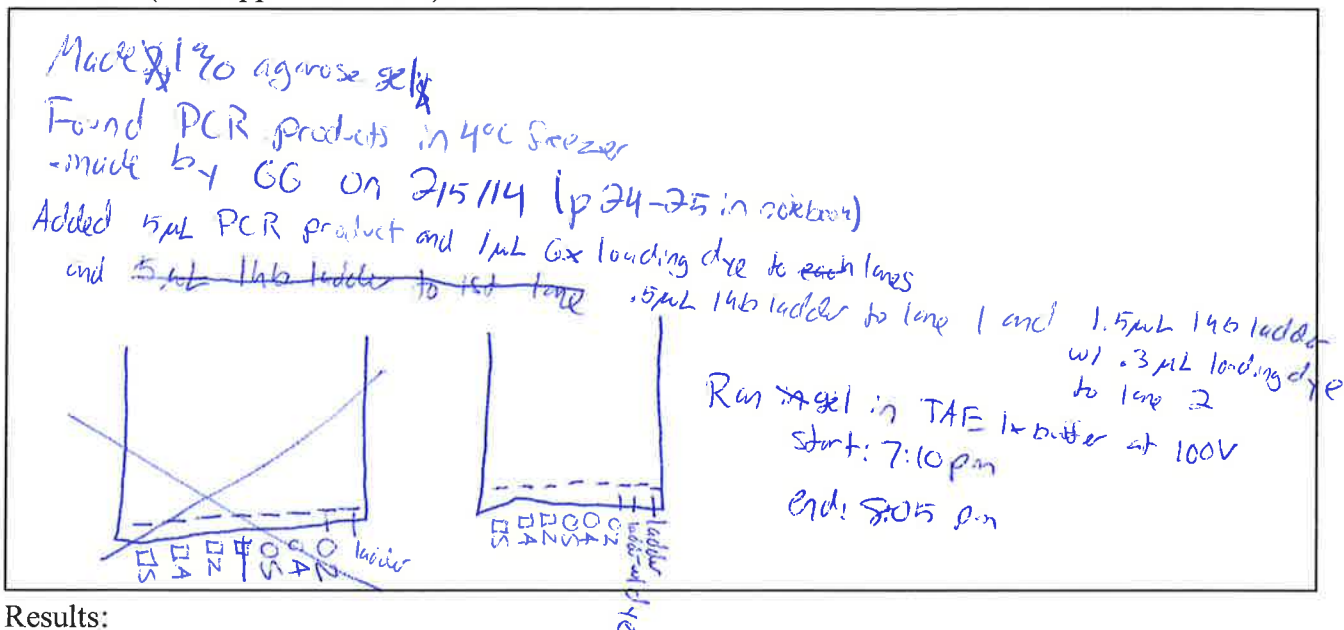 Made 1% agarose gel
Found PCR products in 4°C freezer
- made by GG on 2/5/14 (p 24-25 in notebook)
Added 5µL PCR product and 1µL 6x loading dye to each lanes
and 5µL 1kb ladder to 1st lane .5µL 1kb ladder to lane 1 and 1.5µL 1kb ladder
w/ .3µL loading dye
to lane 2
Ran gel in TAE 1x buffer at 100V
start: 7:10 pm
end: 8:05 pm
□S □A □Z OS OA OZ ladder
□S □A □Z OS OA OZ ladder w/ dye ladder
Results: